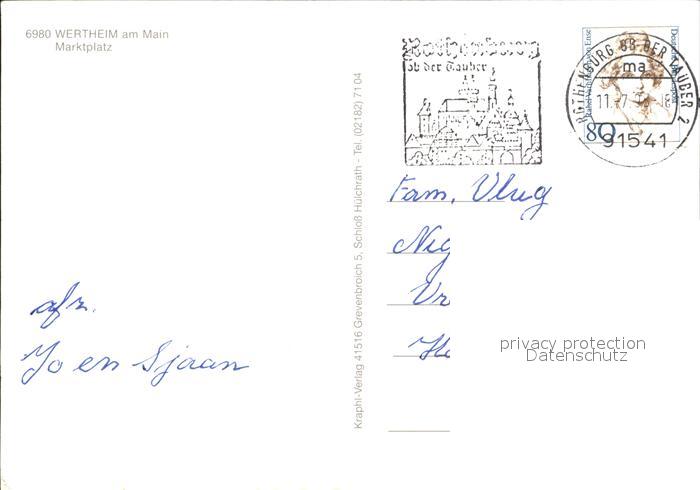 6980 WERTHEIM am Main
Marktplatz
Rothenburg
ob der Tauber
ROTHENBURG OB DER TAUBER 2
ma
91541
80
Kraphl-Verlag 41516 Grevenbroich 5, Schloß Hülchrath - Tel. (02182) 71 04
Fam. Vlug
afz.
Jo en Sjaan
privacy protection
Datenschutz